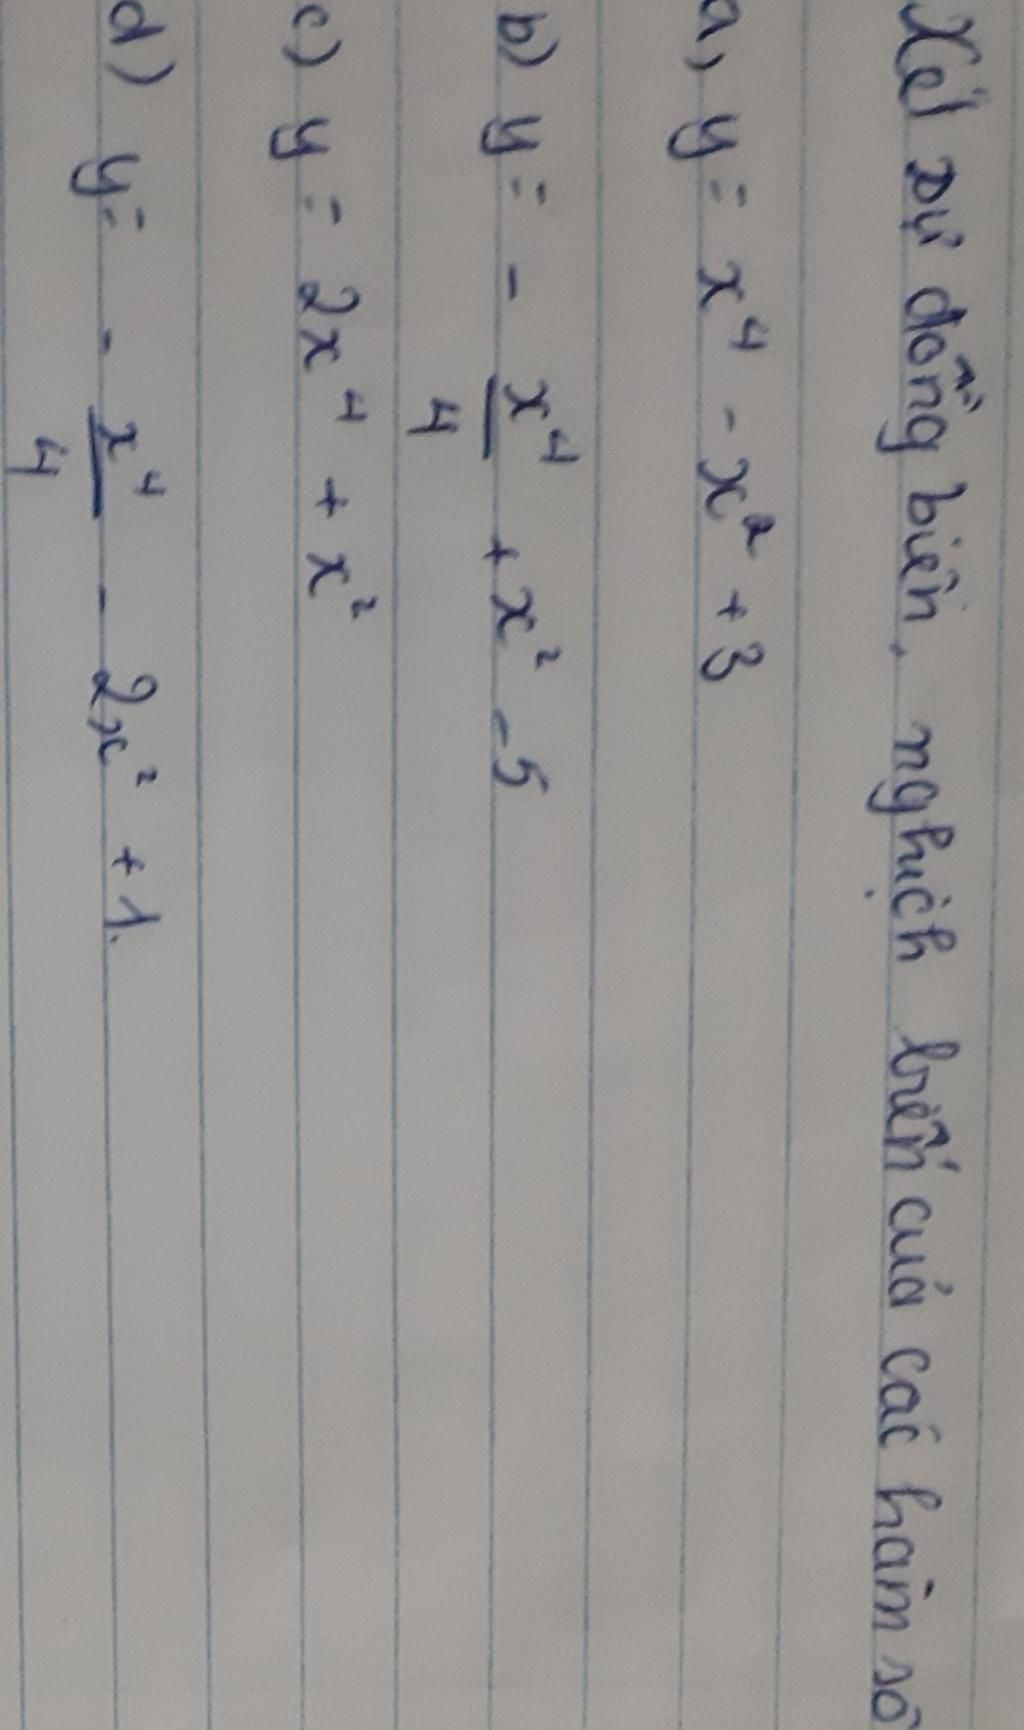 Xét sự đồng biến, nghịch biến của các hàm số
a, y = x⁴ - x² + 3
b) y = - x⁴/4 + x² - 5
c) y = 2x⁴ + x²
d) y = - x⁴/4 - 2x² + 1.